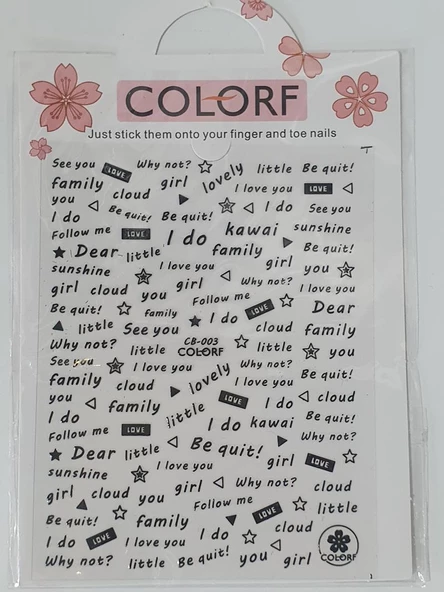 COLORF
Just stick them onto your finger and toe nails
See you LOVE Why not? lovely little Be quit!
family cloud girl I love you LOVE
you Be quit! Be quit! I do See you
I do
Follow me LOVE I do kawai sunshine
Dear little family Be quit!
sunshine I love you girl you
girl cloud you girl Why not? I love you
Be quit! family Follow me LOVE Dear
little See you I do cloud family
Why not? little CB-003 COLORF little you
See you I love you lovely Why not? Be quit!
family cloud I love you
you family little LOVE I do cloud
I do I do kawai Be quit!
Follow me LOVE Be quit! Why not?
Dear little girl LOVE
sunshine I love you
girl cloud you girl Why not? cloud
Be quit! family Follow me LOVE little
I do LOVE I do cloud
Why not? little Be quit! you girl COLORF